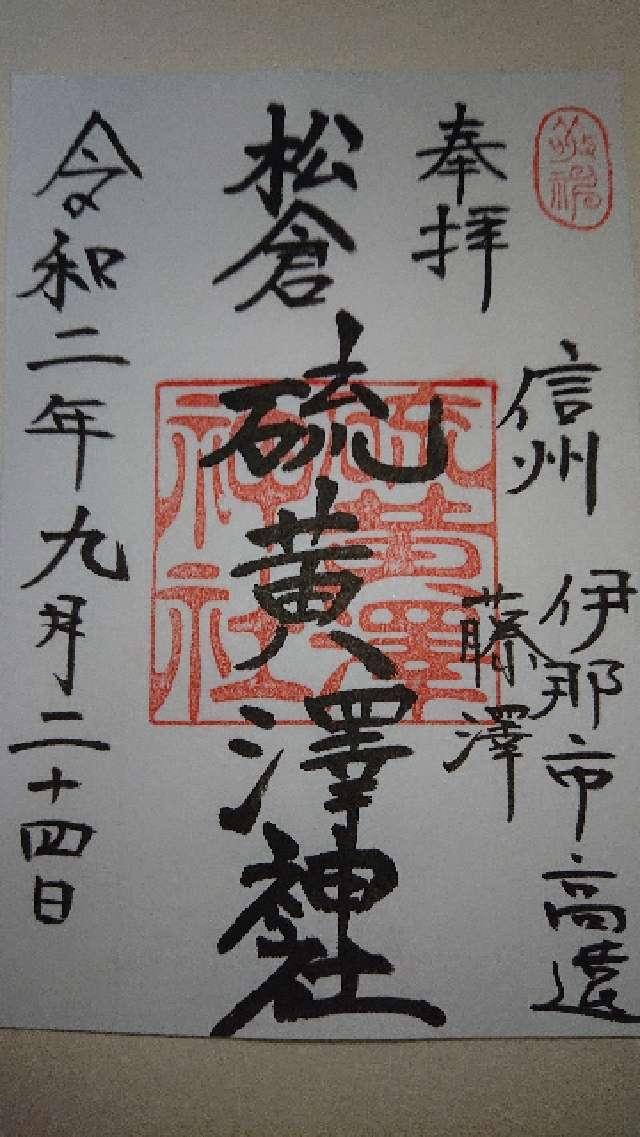 奉拝
信州
伊那市高遠
藤澤
松倉
硫黄澤神社
硫黄澤神社
令和二年九月二十四日